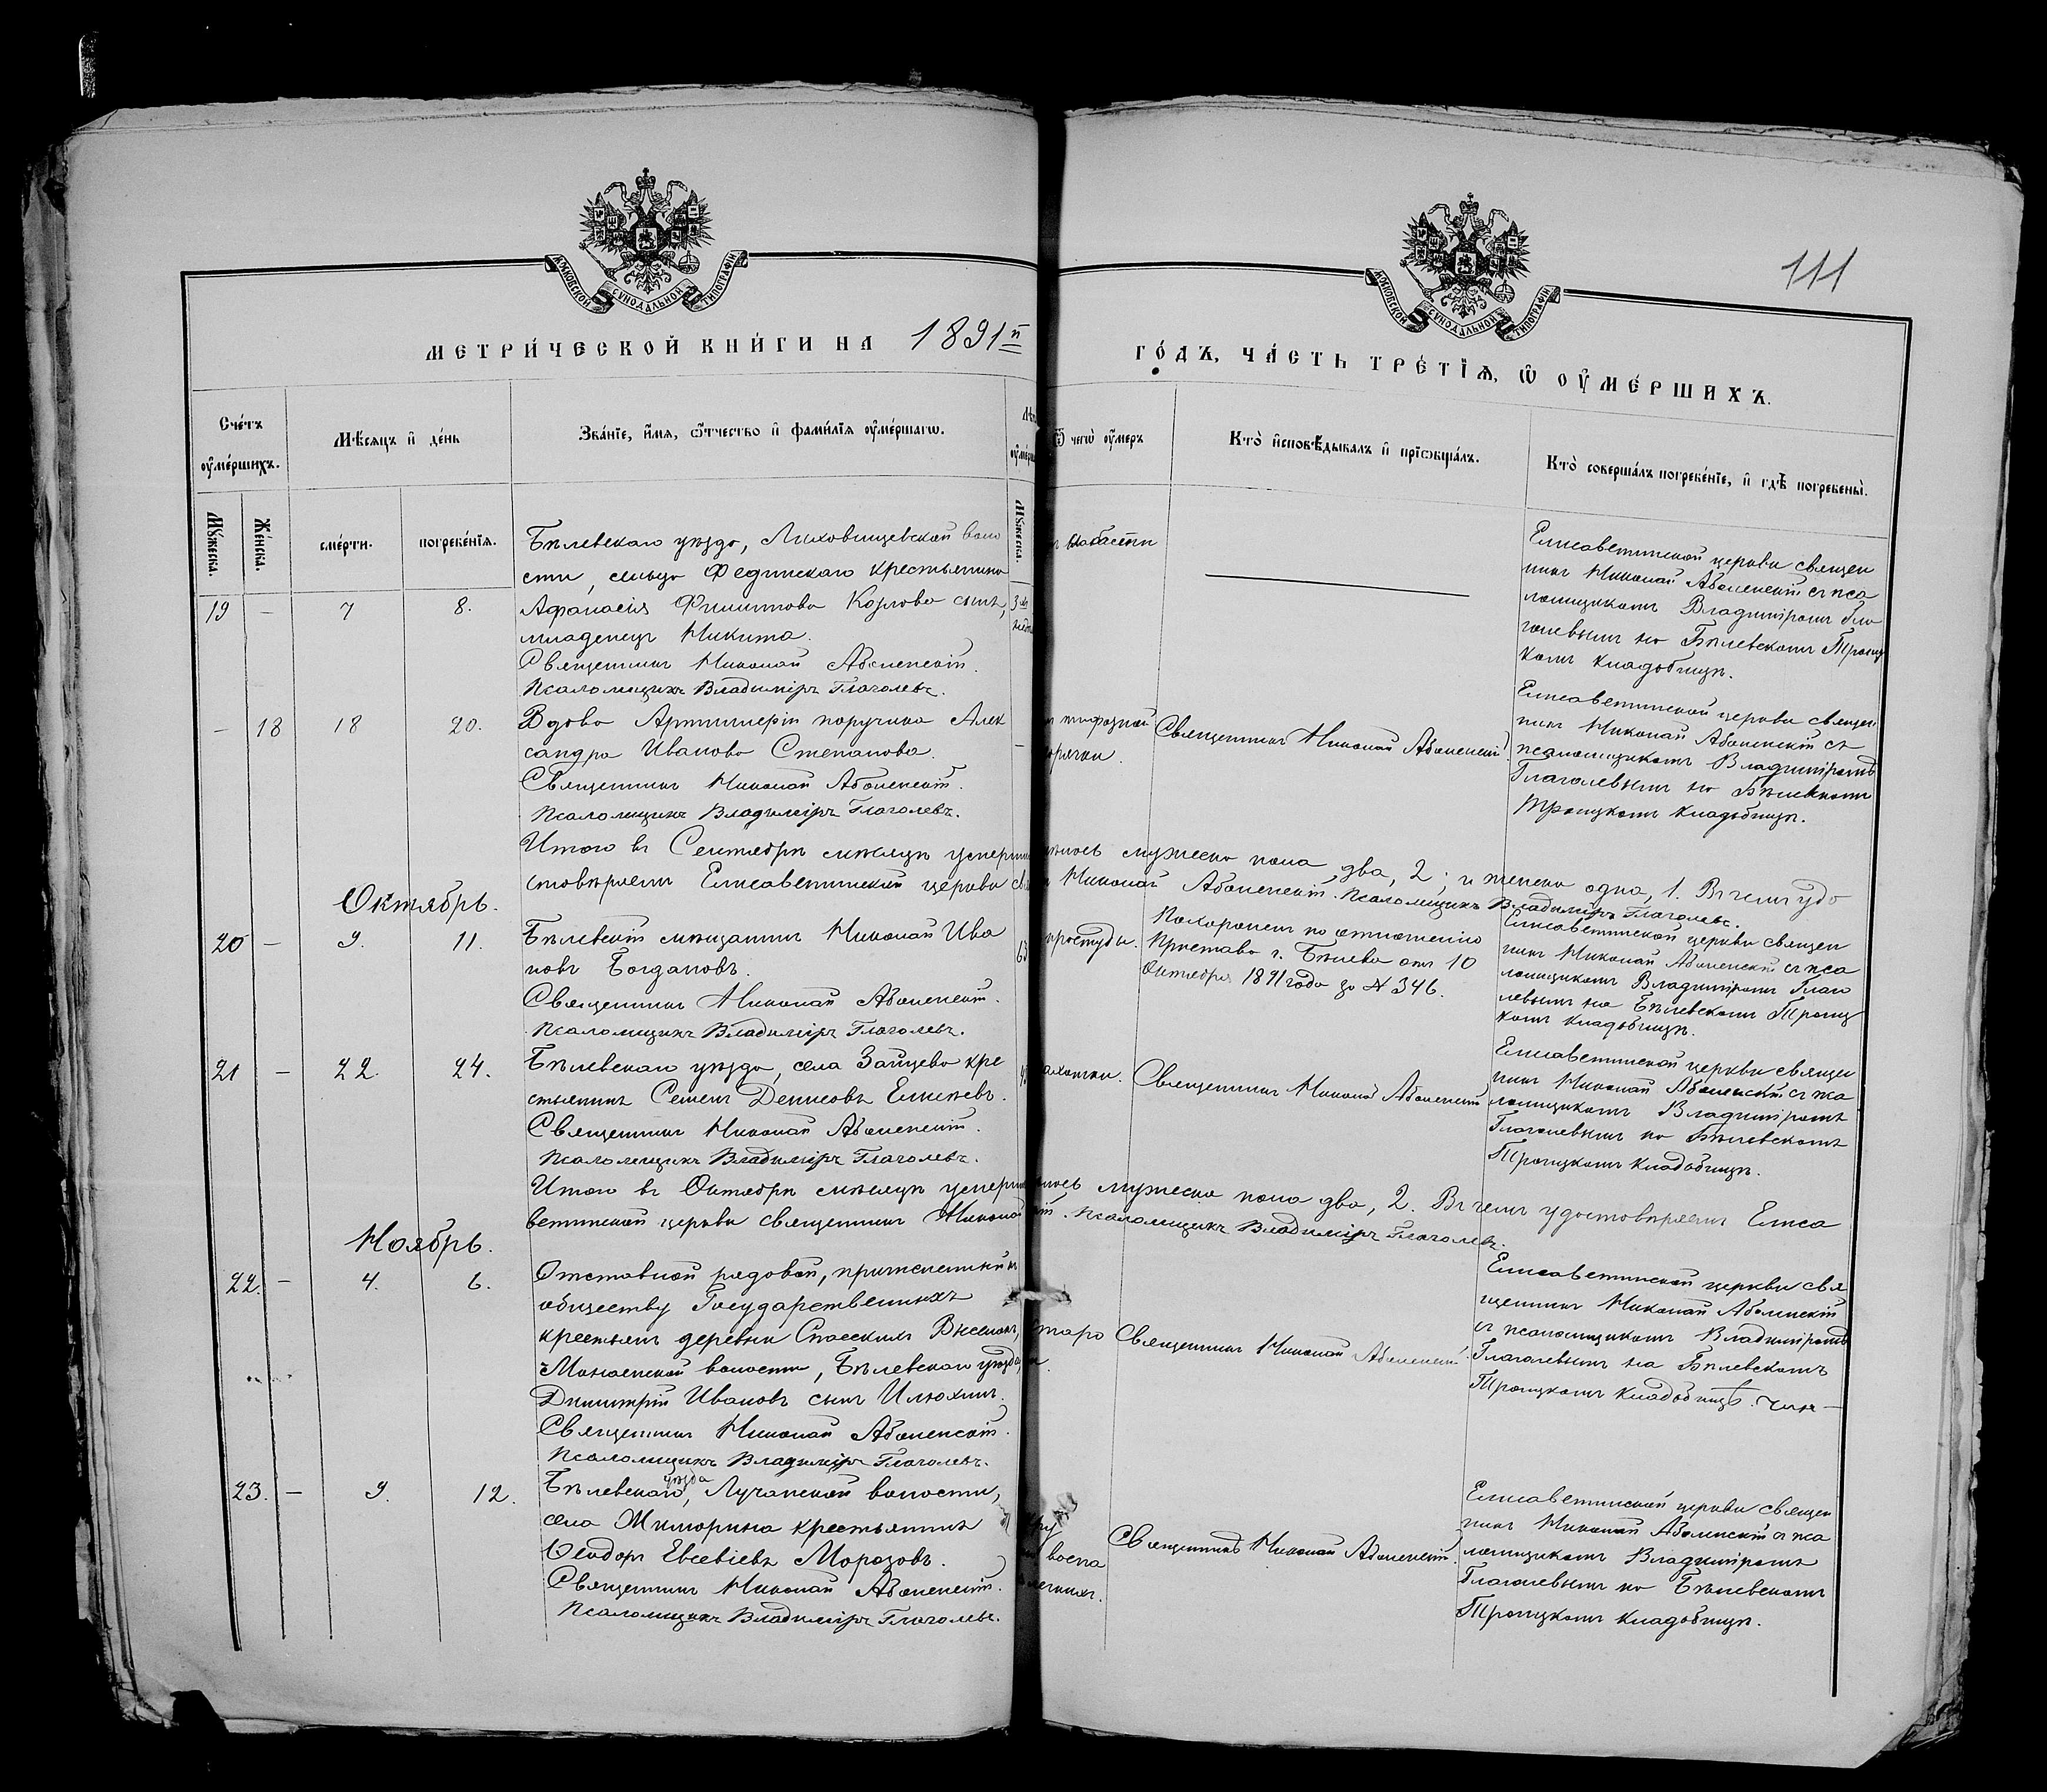 111
МОСКОВСКОЙ СѴНОДАЛЬНОЙ ТИПОГРАФІИ
МОСКОВСКОЙ СѴНОДАЛЬНОЙ ТИПОГРАФІИ
МЕТРИ́ЧЕСКОЙ КНИ́ГИ НА 1891й
ГО́ДЪ, ЧА́СТЬ ТРЕ́ТІѦ, Ѡ ОУМЕ́РШИХЪ.
Сче́тъ оуме́ршихъ.
Мѣ́сяцъ и де́нь
Зва́ніе, и́мя, ѻ́тчество и фами́лія оуме́ршагѡ.
Ѿ чегѡ̀ оу́меръ
Кто̀ и҆сповѣ́дывалъ и҆ прїѡбща́лъ.
Кто̀ соверша́лъ погребе́ніе, и҆ гдѣ̀ погребены̀.
Мꙋ́жеска.
Же́нска.
сме́рти.
погребе́нія.
Мꙋ́жеска.
Бѣлевскаго уѣзда, Лиховищевской воло
сти, сельца Фединскаго крестьянина
19 — 7 8. Афанасія Филиппова Козлова сынъ,
младенец Никита.
Священник Николай Аболенскій.
Псаломщикъ Владиміръ Глаголевъ.
слабости
Елисаветинской церкви священ
ник Николай Аболенскій съ пса
ломщикомъ Владиміромъ Гла
голевымъ на Бѣлевскомъ Троиц
комъ кладбищѣ.
— 18 18 20. Вдова Артиллеріи поручика Алек
сандра Иванова Степанова.
Священник Николай Аболенскій.
Псаломщикъ Владиміръ Глаголевъ.
тифозной
горячки.
Священник Николай Аболенскій.
Елисаветинской церкви священ
ник Николай Аболенскій съ
псаломщикомъ Владиміромъ
Глаголевымъ на Бѣлевскомъ
Троицкомъ кладбищѣ.
Итого в Сентябрѣ мѣсяцѣ умерш мужеска пола два, 2; и женска одна, 1. В чем удо
стовѣряем Елисаветинской церкви Николай Аболенскій. Псаломщикъ Владиміръ Глаголевъ.
Октябрь.
20 — 9. 11. Бѣлевскій мѣщанин Николай Ива
новъ Богдановъ.
Священник Николай Аболенскій.
Псаломщикъ Владиміръ Глаголевъ.
63
простуды.
Похоронен по отношенію
Пристава г. Бѣлева отъ 10
Октября 1891 года за № 346.
Елисаветинской церкви священ
ник Николай Аболенскій съ пса
ломщикомъ Владиміромъ Глаго
левымъ на Бѣлевскомъ Троиц
комъ кладбищѣ.
21 — 22. 24. Бѣлевскаго уѣзда, села Зайцева кре
стьянинъ Семен Денисовъ Елисѣевъ.
Священник Николай Аболенскій.
Псаломщикъ Владиміръ Глаголевъ.
чахотки.
Священник Николай Аболенскій
Елисаветинской церкви священ
ник Николай Аболенскій съ пса
ломщикомъ Владиміромъ
Глаголевымъ на Бѣлевскомъ
Троицкомъ кладбищѣ.
Итого в Октябрѣ мѣсяцѣ умерш мужеска пола два, 2. В чем удостовѣряем Елиса
ветинской церкви священник Николай Псаломщикъ Владиміръ Глаголевъ.
Ноябрь.
22. — 4. 6. Отставной рядовой,
обществу Государственныхъ
крестьян деревни Спасских
волости, Бѣлевскаго уѣзда,
Димитрій Ивановъ сын Илюхин.
Священник Николай Аболенскій.
Псаломщикъ Владиміръ Глаголевъ.
старо
Священник Николай Аболенскій.
Елисаветинской церкви свя
щенник Николай Аболенскій
съ псаломщикомъ Владиміромъ
Глаголевымъ на Бѣлевскомъ
Троицкомъ кладбищѣ.
23. — 9. 12. Бѣлевскаго уѣзда, Лучанской волости,
села Жиморина крестьянинъ
Ѳеодоръ Евсевіевъ Морозовъ.
Священник Николай Аболенскій.
Псаломщикъ Владиміръ Глаголевъ.
воспа
легких.
Священникъ Николай Аболенскій.
Елисаветинской церкви священ
ник Николай Аболенскій съ пса
ломщикомъ Владиміромъ
Глаголевымъ на Бѣлевскомъ
Троицкомъ кладбищѣ.